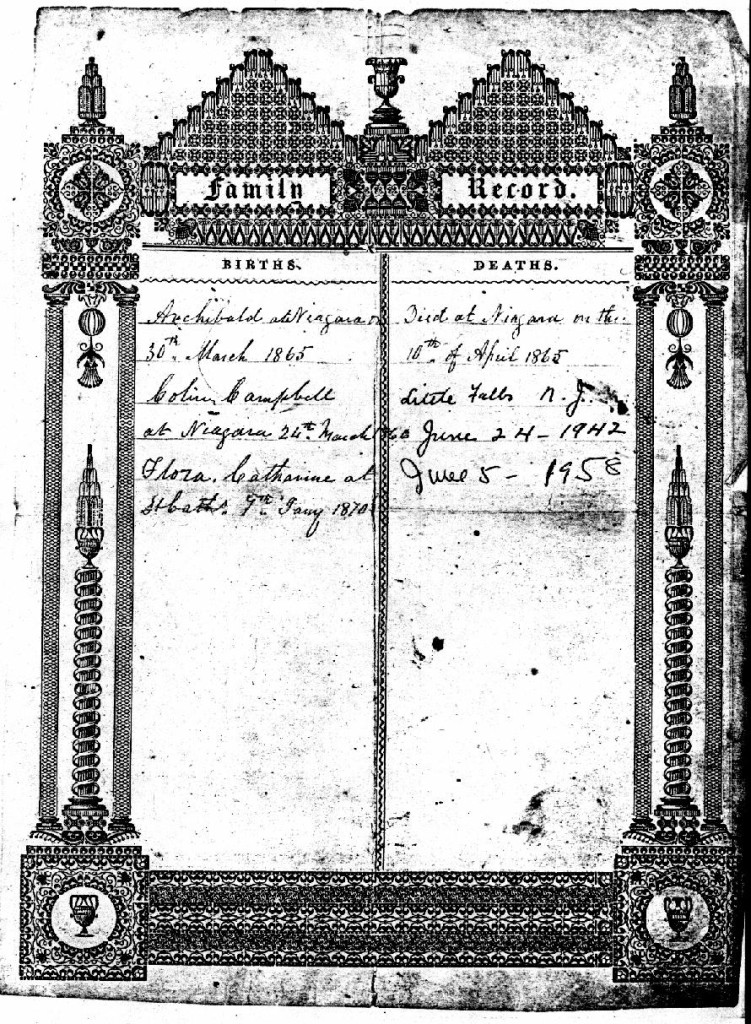 Family Record.
BIRTHS.
Archibald at Niagara
30th March 1865
Colin Campbell
at Niagara 24th March
Flora Catharine at
St Caths. 7th Jany 1870
DEATHS.
Died at Niagara on the
10th of April 1865
Little Falls N. J.
June 24 - 1942
June 5 - 1958